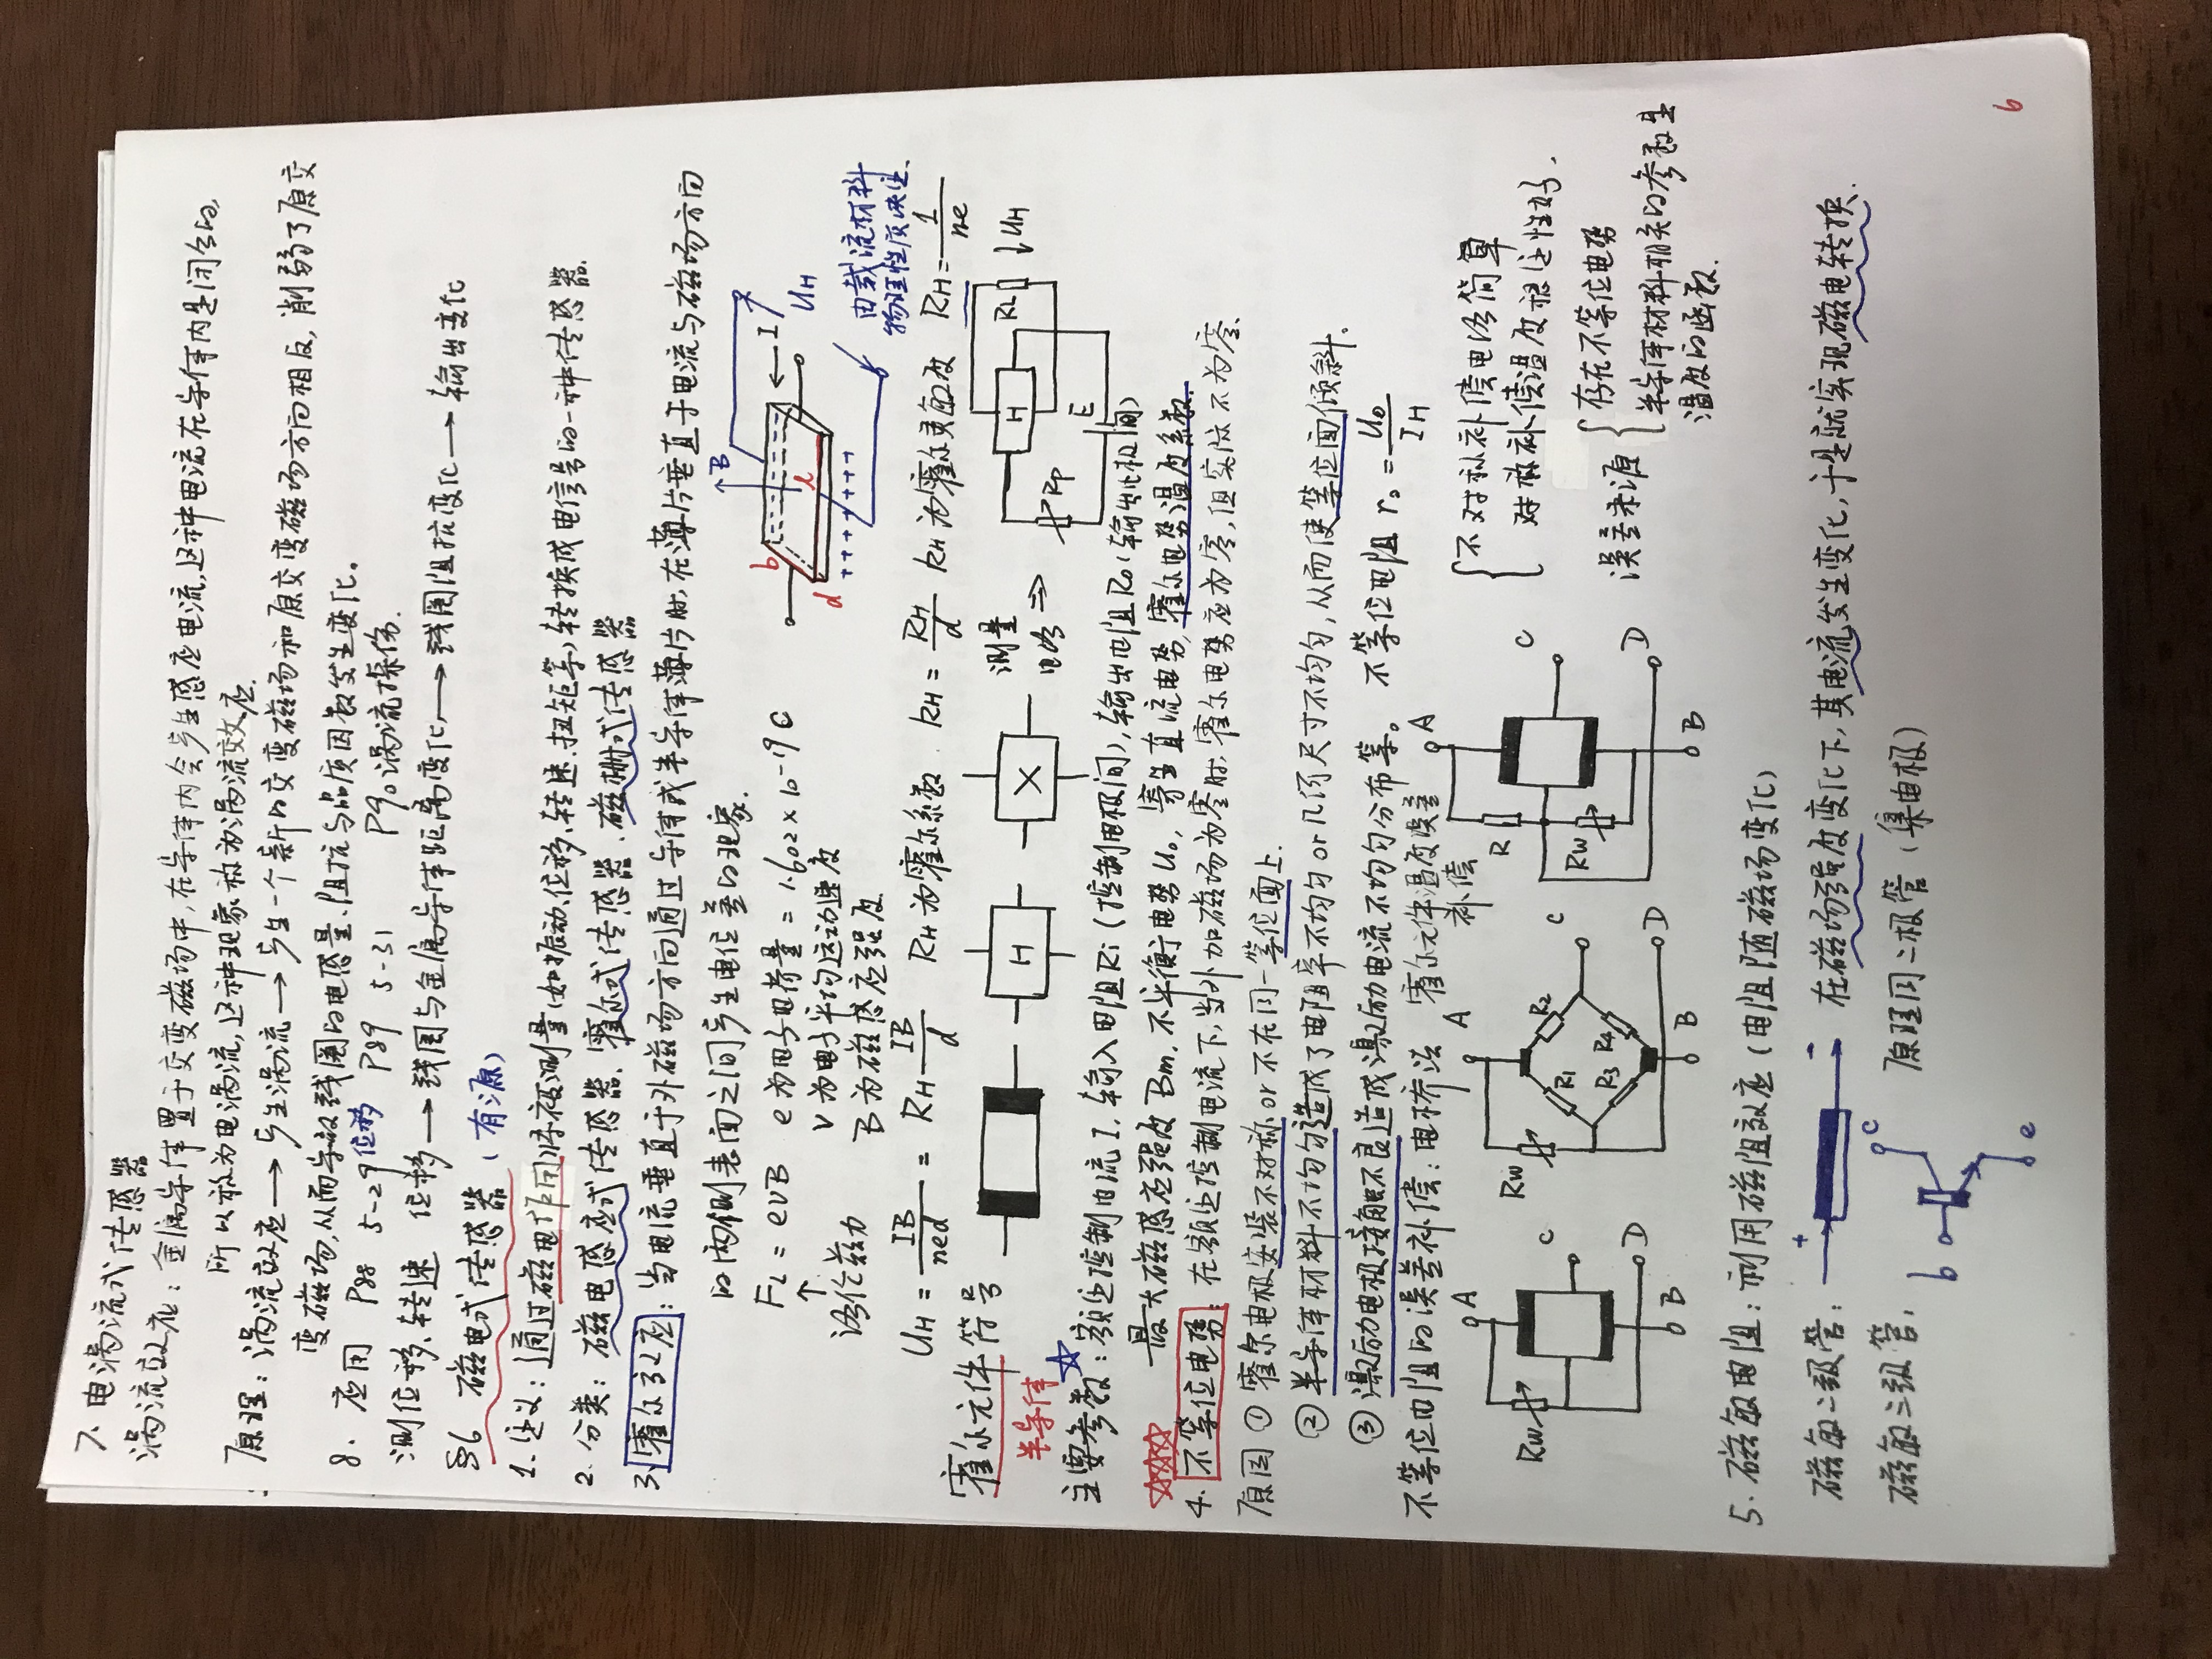 7、电涡流式传感器
涡流效应：金属导体置于交变磁场中,在导体内会产生感应电流,这种电流在导体内是闭合的,
所以称为电涡流,这种现象称为涡流效应.
原理：涡流效应→产生涡流→产生一个新的交变磁场和原交变磁场方向相反,削弱了原交
变磁场,从而导致线圈的电感量、阻抗与品质因数发生变化。
8. 应用 P88 5-29位移 P89 5-31 P90涡流探伤.
测位移、转速 位移→线圈与金属导体距离变化→线圈阻抗变化→输出变化
§6 磁电式传感器（有源）
1. 定义：通过磁电作用将被测量(如振动、位移、转速、扭矩等)转换成电信号的一种传感器.
2. 分类：磁电感应式传感器、霍尔式传感器、磁栅式传感器
3、霍尔效应：当电流垂直于外磁场方向通过导体或半导体薄片时,在薄片垂直于电流与磁场方向
的两侧表面之间产生电位差的现象.
FL = evB e为电子电荷量 = 1.602×10⁻¹⁹C
↑ v为电子平均运动速度
洛伦兹力 B为磁感应强度
B
b
I
l
UH
d
+++++++
由载流材料
物理性质决定.
UH = IB/ned = RH IB/d RH为霍尔系数. KH = RH/d KH为霍尔灵敏度 RH = 1/ne
霍尔元件符号 H × 测量电路⇒ H RL ↓UH
半导体 Rp E
主要参数☆：额定控制电流I. 输入电阻Ri（控制电极间）,输出电阻Ro（输出电极间）
☆☆☆ 最大磁感应强度Bm. 不平衡电势U₀, 寄生直流电势,霍尔电势温度系数.
4. 不等位电势：在额定控制电流下,当外加磁场为零时,霍尔电势应为零,但实际不为零.
原因 ① 霍尔电极安装不对称 or 不在同一等位面上.
② 半导体材料不均匀造成了电阻率不均匀 or 几何尺寸不均匀, 从而使等位面倾斜.
③ 激励电极接触不良造成激励电流不均匀分布等。 不等位电阻 r₀ = U₀/IH
不等位电阻的误差补偿：电桥法 霍尔元件温度误差
补偿
A Rw C D B
A Rw R1 R2 R3 R4 C D B
A R Rw C D B
不对称补偿电路简单
对称补偿温度稳定性好.
误差来源 存在不等位电势
半导体材料相关的参数是
温度的函数.
5. 磁敏电阻：利用磁阻效应（电阻随磁场变化）
磁敏二级管： + - 在磁场强度变化下,其电流发生变化,于是就实现磁电转换.
磁敏三级管： b c e 原理同二极管（集电极）
6